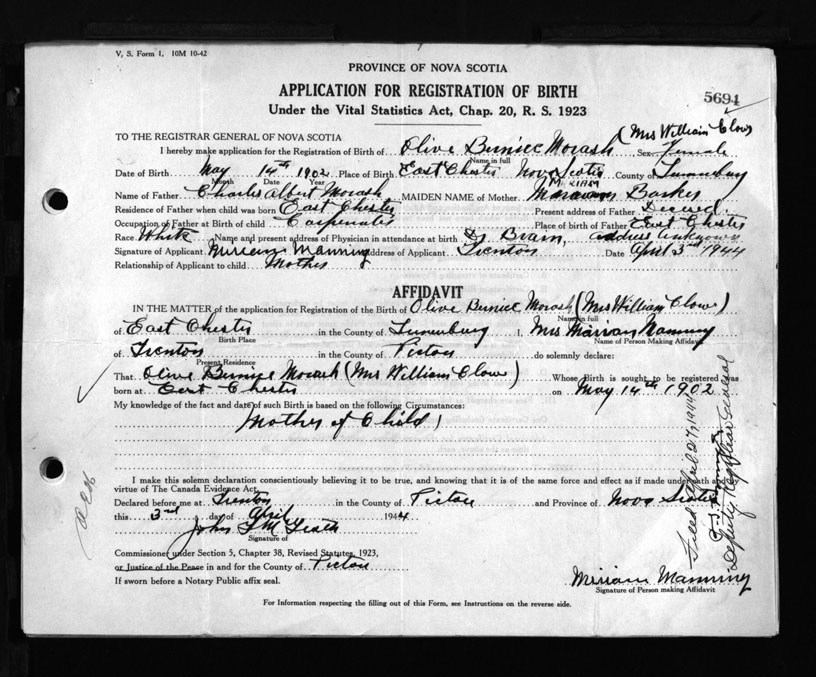 V. S. Form 1. 10M 10-42
PROVINCE OF NOVA SCOTIA
APPLICATION FOR REGISTRATION OF BIRTH
5694
Under the Vital Statistics Act, Chap. 20, R. S. 1923
TO THE REGISTRAR GENERAL OF NOVA SCOTIA
(Mrs William Clow)
I hereby make application for the Registration of Birth of Olive Bernice Morash Sex Female
Name in full
Date of Birth May 14th 1902 Place of Birth East Chester Nova Scotia County of Lunenburg
Month Date Year
Name of Father Charles Albert Morash MAIDEN NAME of Mother Miriam Barkes
Residence of Father when child was born East Chester Present address of Father
Occupation of Father at Birth of child Carpenter Place of birth of Father East Chester
Race White Name and present address of Physician in attendance at birth address unknown
Signature of Applicant Miriam Manning Address of Applicant Trenton Date April 3rd 1944
Relationship of Applicant to child Mother
AFFIDAVIT
IN THE MATTER of the application for Registration of the Birth of Olive Bernice Morash (Mrs William Clow)
Name in full
of East Chester in the County of Lunenburg I, Mrs Manning
Birth Place Name of Person Making Affidavit
of Trenton in the County of Pictou do solemnly declare:
Present Residence
That Olive Bernice Morash (Mrs William Clow) Whose Birth is sought to be registered was
born at East Chester on May 14th 1902
My knowledge of the fact and date of such Birth is based on the following Circumstances:
Mother of Child
I make this solemn declaration conscientiously believing it to be true, and knowing that it is of the same force and effect as if made under oath
virtue of The Canada Evidence Act.
Declared before me at Trenton in the County of Pictou and Province of Nova Scotia
this 3rd day of April 1944
John
Signature of
Commissioner under Section 5, Chapter 38, Revised Statutes, 1923,
or Justice of the Peace in and for the County of Pictou
If sworn before a Notary Public affix seal.
Miriam Manning
Signature of Person making Affidavit
For Information respecting the filling out of this Form, see Instructions on the reverse side.
Filed April 27, 1944
Deputy Registrar General